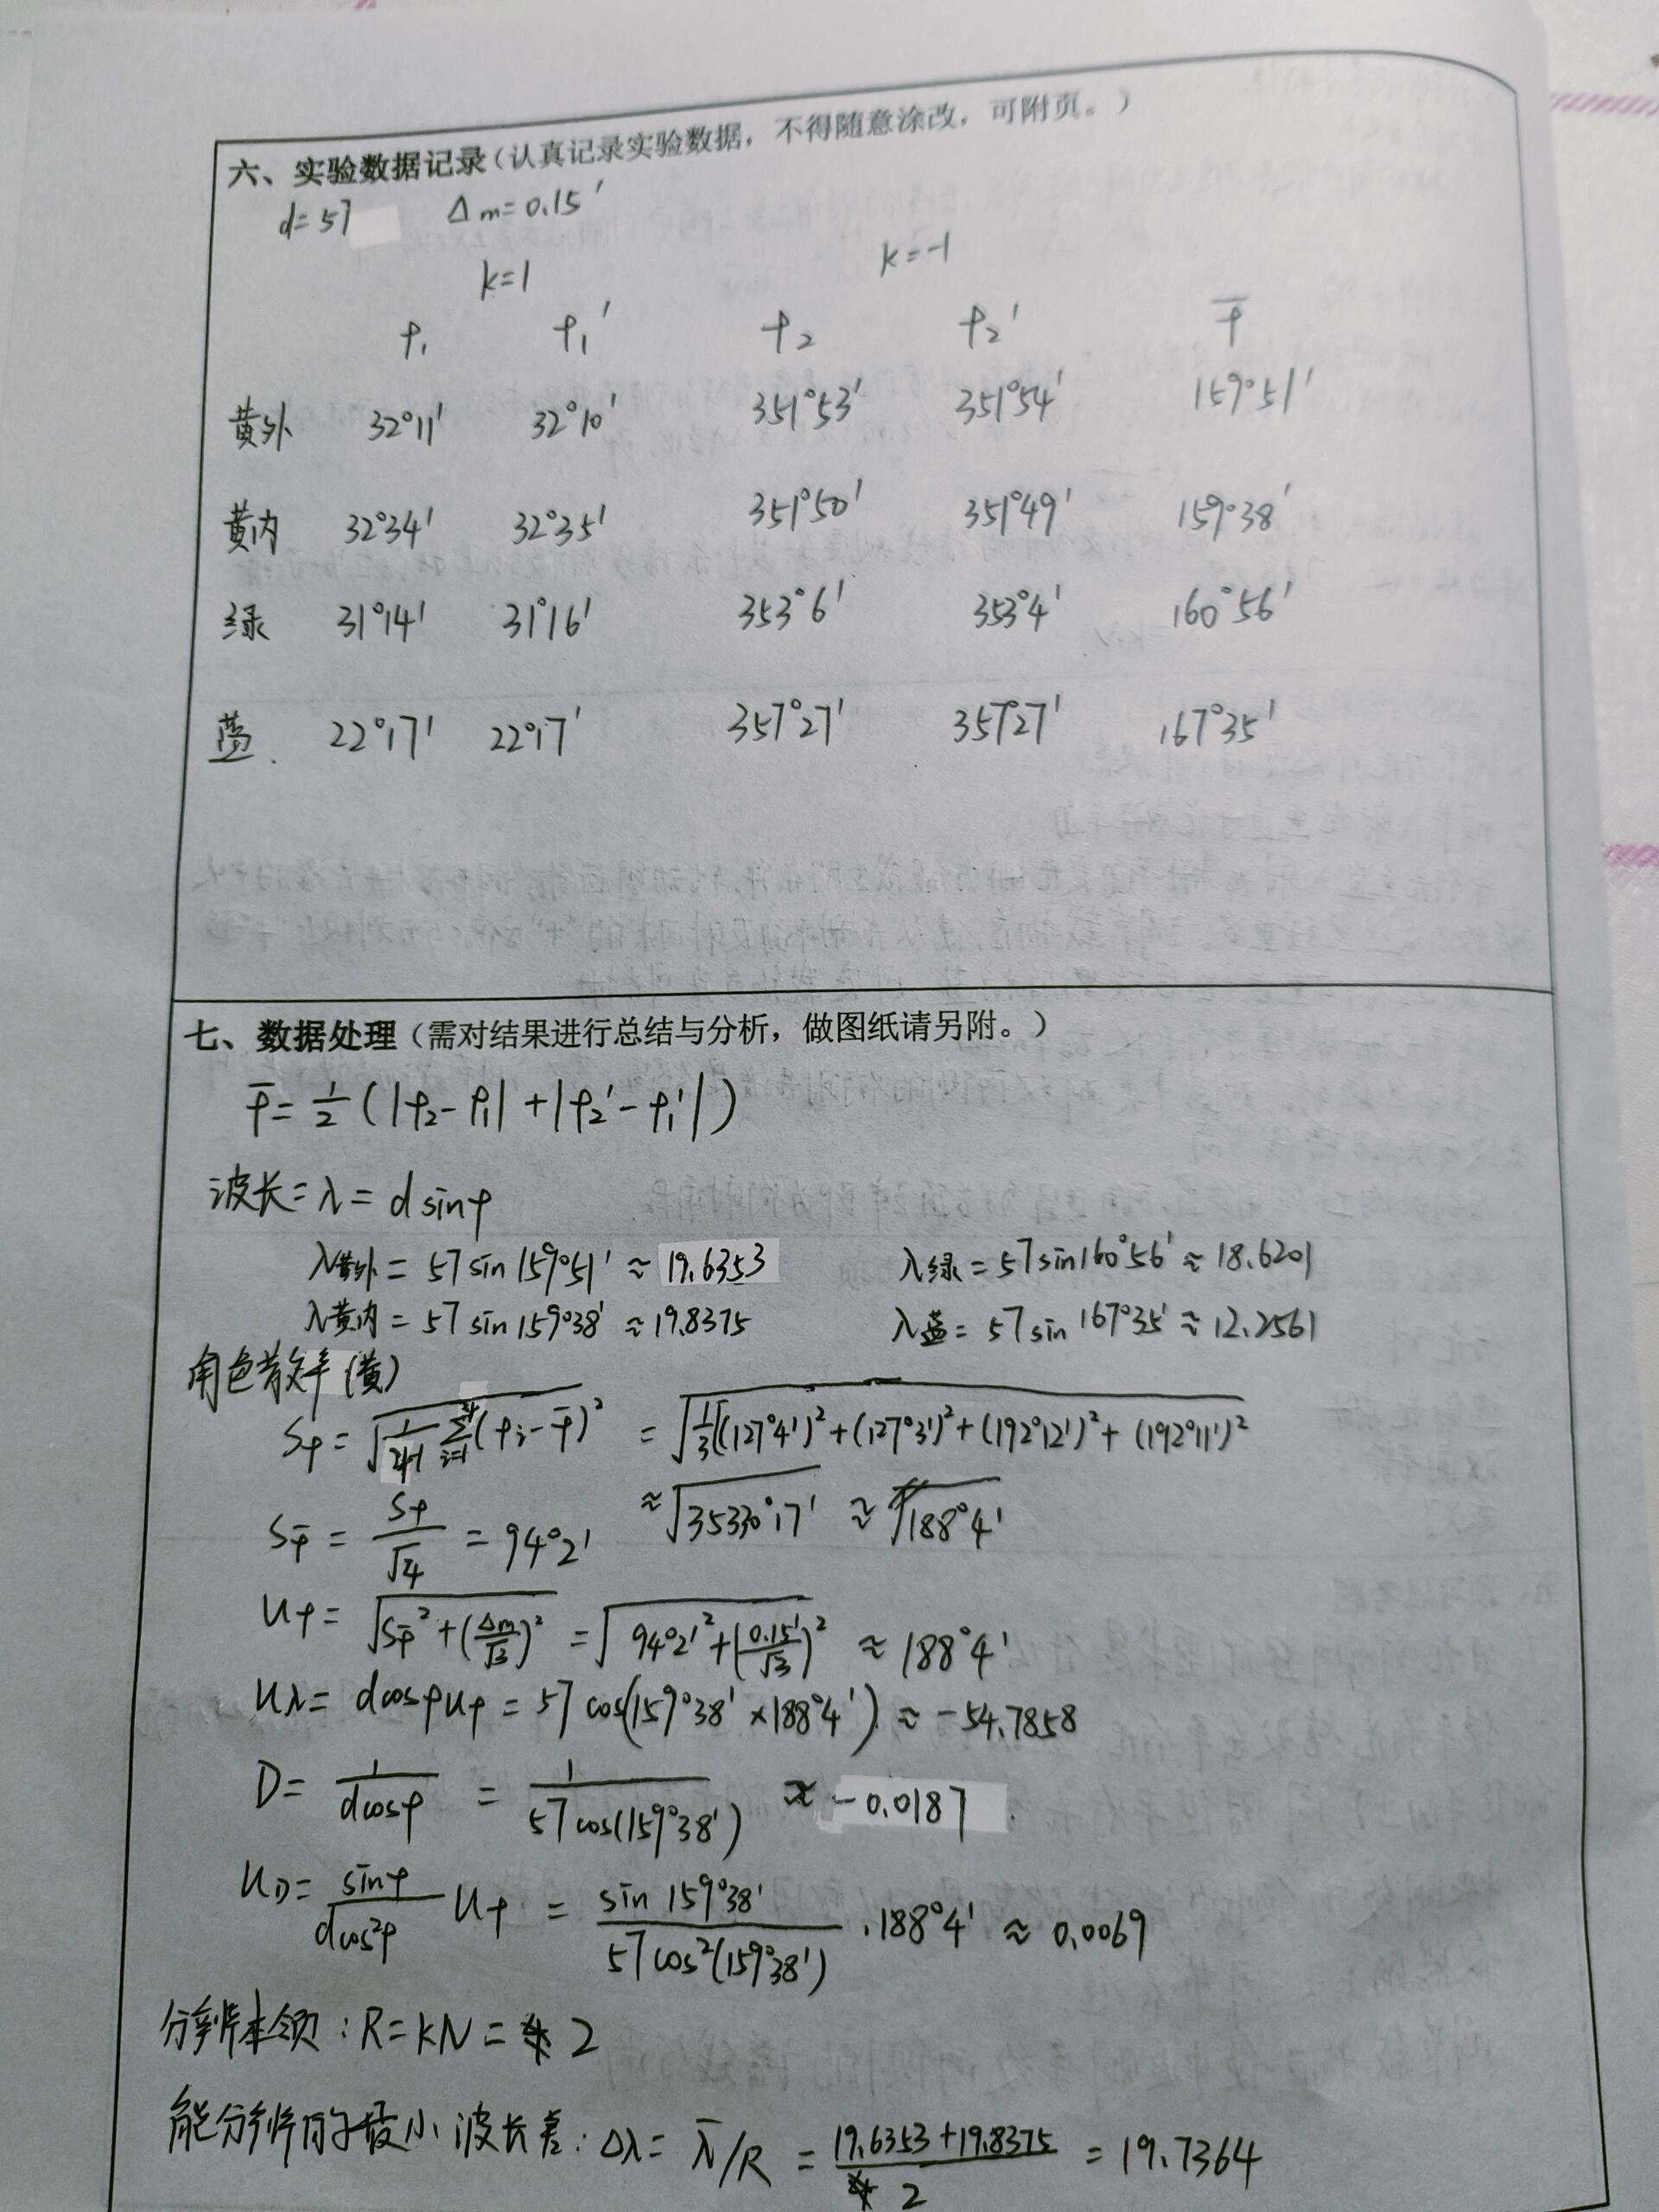 六、实验数据记录（认真记录实验数据，不得随意涂改，可附页。）
d=57 Δm=0.15′
k=1 k=-1
φ₁ φ₁′ φ₂ φ₂′ φ̅
黄外 32°11′ 32°10′ 351°53′ 351°54′ 159°51′
黄内 32°34′ 32°35′ 351°50′ 351°49′ 159°38′
绿 31°14′ 31°16′ 353°6′ 353°4′ 160°56′
蓝 22°17′ 22°17′ 357°27′ 357°27′ 167°35′
七、数据处理（需对结果进行总结与分析，做图纸请另附。）
φ̅=1/2(|φ₂-φ₁|+|φ₂′-φ₁′|)
波长=λ=d sinφ
λ黄外=57sin159°51′≈19.6353 λ绿=57sin160°56′≈18.6201
λ黄内=57sin159°38′≈19.8375 λ蓝=57sin167°35′≈12.2561
角色散率(黄)
Sφ=√(1/(4-1) Σ(φi-φ̅)²) =√(1/3((127°4′)²+(127°3′)²+(192°12′)²+(192°11′)²
≈√35330°17′ ≈188°4′
Sφ̅=Sφ/√4=94°2′
uφ=√(Sφ̅²+(Δm/√3)²)=√(94°2′²+(0.15′/√3)²)≈188°4′
uλ=dcosφuφ=57cos(159°38′×188°4′)≈-54.7858
D=1/(dcosφ)=1/(57cos(159°38′))≈-0.0187
uD=sinφ/(dcos²φ) uφ=sin159°38′/(57cos²(159°38′))·188°4′≈0.0069
分辨本领:R=kN=2
能分辨的最小波长差:Δλ=λ̅/R=(19.6353+19.8375)/2=19.7364